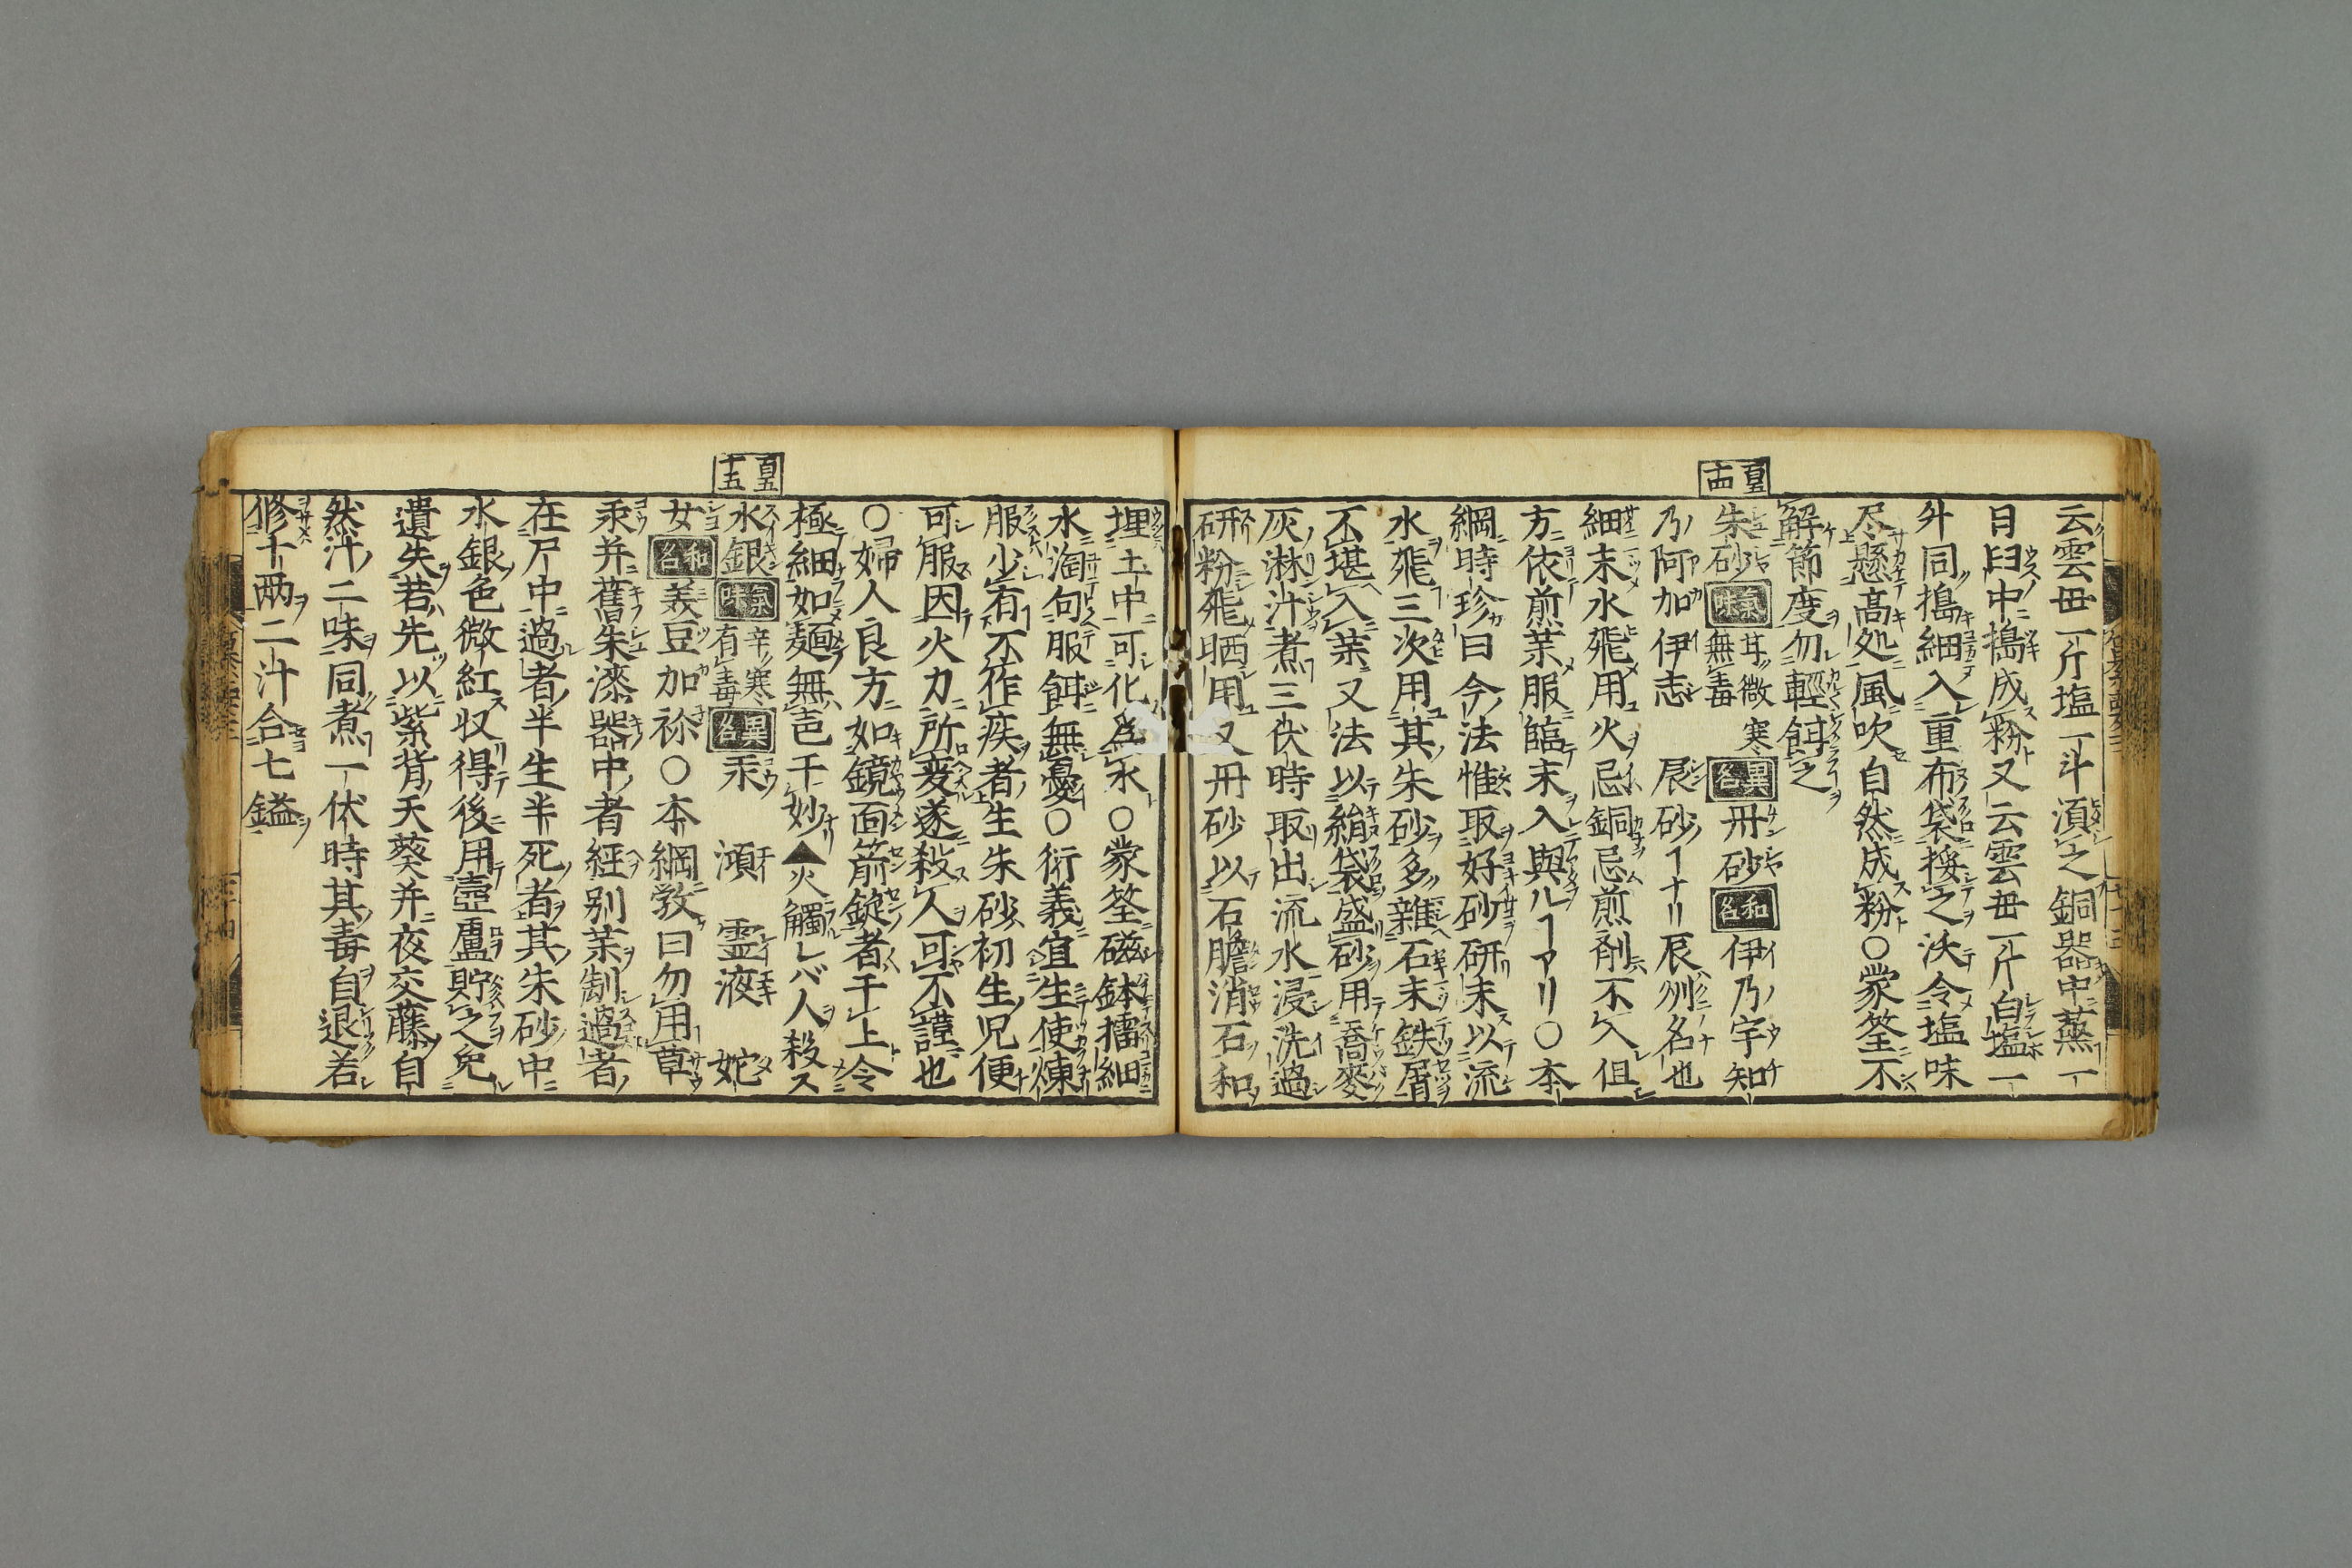 云雲母一斤塩一斗漬之銅器中蒸一
日臼中搗成粉又云雲母一斤白塩一
升同搗細入重布袋挼之沃令塩味
尽懸高処風吹自然成粉〇蒙筌不
解節度勿輕餌之
朱砂 氣味 甘微寒無毒 異名 丹砂 和名 伊乃宇知
乃阿加伊志 辰砂ーナリ辰州名也
細末水飛用火忌銅忌煎剤不入但
方依煎茱服臨末入與ルーアリ〇本
綱時珍曰今法惟取好砂研末以流
水飛三次用其朱砂多雜石末鉄屑
不堪入茱又法以絹袋盛砂用蕎麥
灰淋汁煮三伏時取出流水浸洗過
研粉飛晒用又丹砂以石膽消石和
埋土中可化為水〇蒙筌磁鉢擂細
水淘句服餌無憂〇衍義宜生使煉
服少有不作疾者生朱砂初生児便
可服因火力所変遂殺人可不謹也
〇婦人良方如鏡面箭錠者干上令
極細如麺無声干妙▲火觸レバ人殺ス
水銀 氣味 辛寒有毒 異名 汞 澒 霊液 姹
女 和名 義豆加祢〇本綱斅曰勿用草
汞并舊朱漆器中者経別茱制過者
在尸中過者半生半死者其朱砂中
水銀色微紅収得後用壼盧貯之免
遺失若先以紫背天葵并夜交藤自
然汁二味同煮一伏時其毒自退若
修十两二汁合七鎰